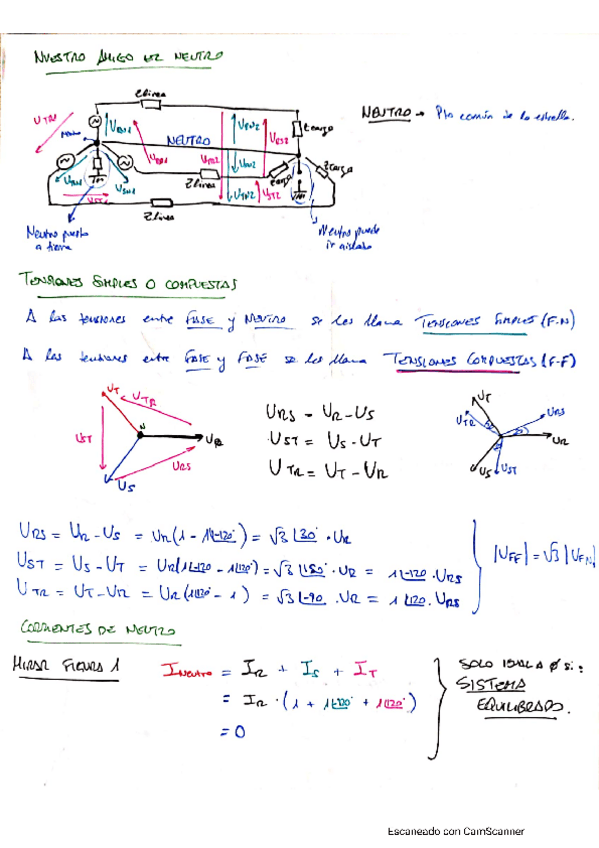 NUESTRO AMIGO EL NEUTRO
Zlinea
UTR1
URN1
Neutro
NEUTRO
URS1
UTN1
USN1
UST1
Zlinea
Zlinea
UTR2
URN2
USN2
UTN2
URS2
UST2
Zcarga
Zcarga
Zcarga
NEUTRO → Pto común de la estrella.
Neutro puesto
a tierra
Neutro puede
ir aislado
TENSIONES SIMPLES O COMPUESTAS
A las tensiones entre FASE y NEUTRO se les llama TENSIONES SIMPLES (F-N)
A las tensiones entre FASE y FASE se les llama TENSIONES COMPUESTAS (F-F)
UT
UTR
UST
N
UR
URS
US
URS = UR - US
UST = US - UT
UTR = UT - UR
UT
UTR
URS
UR
US
UST
URS = UR - US = UR (1 - 1∠-120°) = √3 ∠30° · UR
UST = US - UT = UR (1∠-120 - 1∠120°) = √3 ∠180° · UR = 1∠-120 · URS
UTR = UT - UR = UR (1∠120 - 1) = √3 ∠-90 · UR = 1∠120 · URS
|UFF| = √3 |UFN|
CORRIENTES DE NEUTRO
MIRAR FIGURA 1
INEUTRO = IR + IS + IT
= IR · (1 + 1∠-120° + 1∠120°)
= 0
SOLO IGUAL A ∅ si:
SISTEMA
EQUILIBRADO.
Escaneado con CamScanner